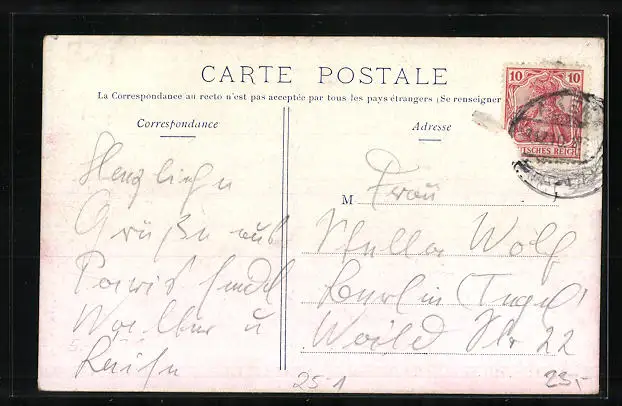 CARTE POSTALE
La Correspondance au recto n'est pas acceptée par tous les pays étrangers (Se renseigner
Correspondance
Adresse
10 10
TSCHES REICH
Herzliche
Grüße aus
Paris sendet
Walter u
M Frau
Stella Wolf
Berlin Tegel
Str 22
25-1
23,-